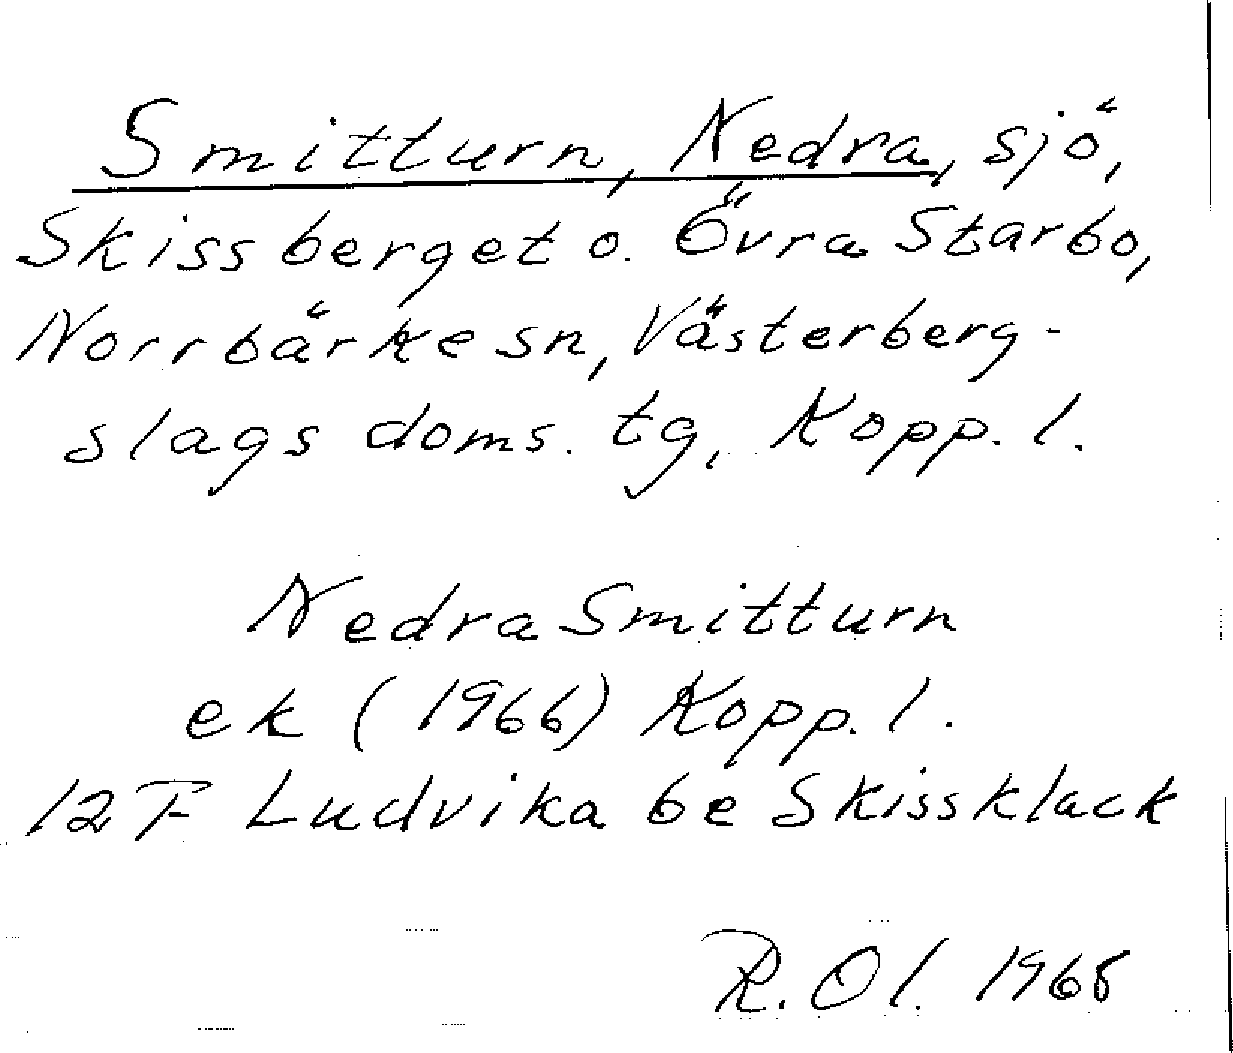 Smitturn, Nedra, sjö,
Skissberget o. Övra Starbo,
Norrbärke sn, Västerberg-
slags doms. tg, Kopp. l.
Nedra Smitturn
ek (1966) Kopp. l.
12F Ludvika 6e Skissklack
R. Ol. 1968